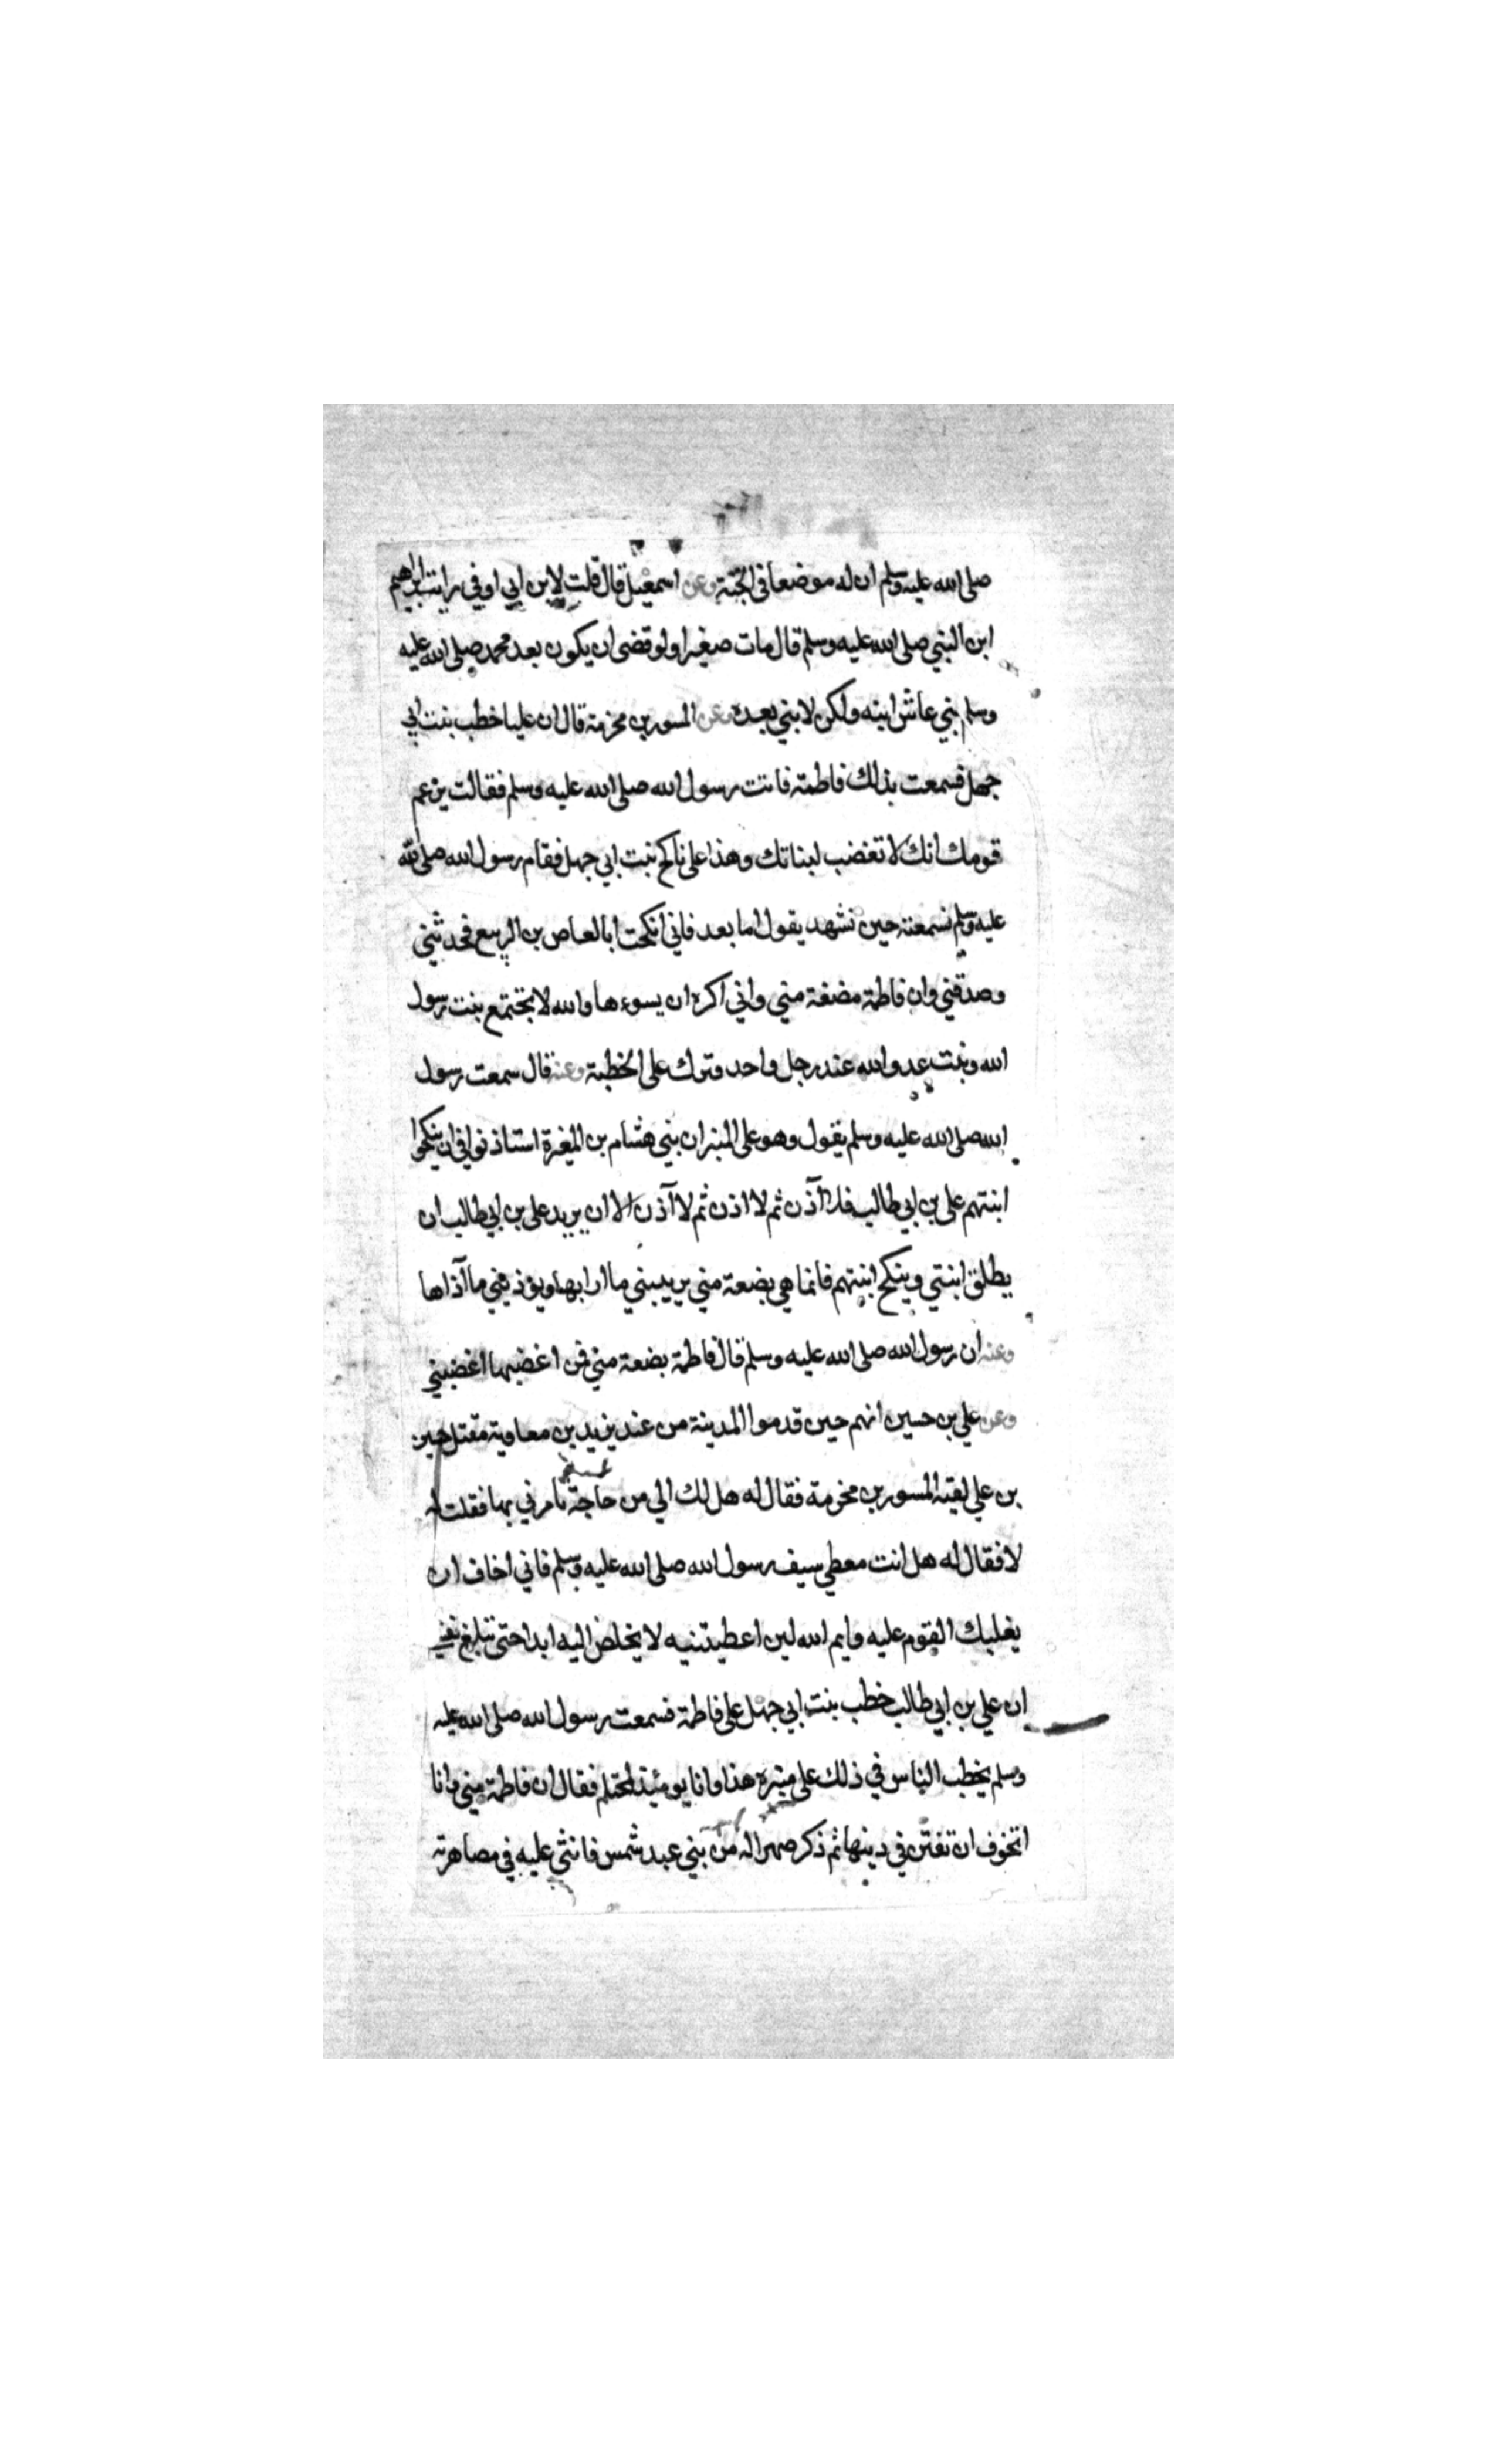 صلى الله عليه وسلم ان له موضعا في الجنة وعن اسمعيل قال قلت لابن ابي اوفى رايت ابراهيم
ابن النبي صلى الله عليه وسلم قال مات صغيرا ولو قضى ان يكون بعد محمد صلى الله عليه
وسلم نبي عاش ابنه ولكن لا نبي بعده وعن المسور بن مخرمة قال ان عليا خطب بنت ابي
جهل فسمعت بذلك فاطمة فاتت رسول الله صلى الله عليه وسلم فقالت يزعم
قومك انك لا تغضب لبناتك وهذا على ناكح بنت ابي جهل فقام رسول الله صلى الله
عليه وسلم فسمعته حين تشهد يقول اما بعد فاني انكحت ابا العاص بن الربيع فحدثني
وصدقني وان فاطمة مضغة مني واني اكره ان يسوءها والله لا تجتمع بنت رسول
الله وبنت عدو الله عند رجل واحد فترك على الخطبة وعنه قال سمعت رسول
الله صلى الله عليه وسلم يقول وهو على المنبر ان بني هشام بن المغيرة استاذنوا في ان ينكحوا
ابنتهم علي بن ابي طالب فلا آذن ثم لا اذن ثم لا آذن الا ان يريد علي بن ابي طالب ان
يطلق ابنتي وينكح ابنتهم فانما هي بضعة مني يريبني ما ارابها ويؤذيني ما آذاها
وعنه ان رسول الله صلى الله عليه وسلم قال فاطمة بضعة مني فمن اغضبها اغضبني
وعن علي بن حسين انهم حين قدموا المدينة من عند يزيد بن معاوية مقتل حسين
بن علي لقيه المسور بن مخرمة فقال له هل لك الي من حاجة تامرني بها فقلت له
لا فقال له هل انت معطي سيف رسول الله صلى الله عليه وسلم فاني اخاف ان
يغلبك القوم عليه وايم الله لين اعطيتنيه لا يخلص اليه ابدا حتى تبلغ نفسي
ان علي بن ابي طالب خطب بنت ابي جهل على فاطمة فسمعت رسول الله صلى الله عليه
وسلم يخطب الناس في ذلك على منبره هذا وانا يومئذ لمحتلم فقال ان فاطمة مني وانا
اتخوف ان تفتن في دينها ثم ذكر صهرا له من بني عبد شمس فاثنى عليه في مصاهرته